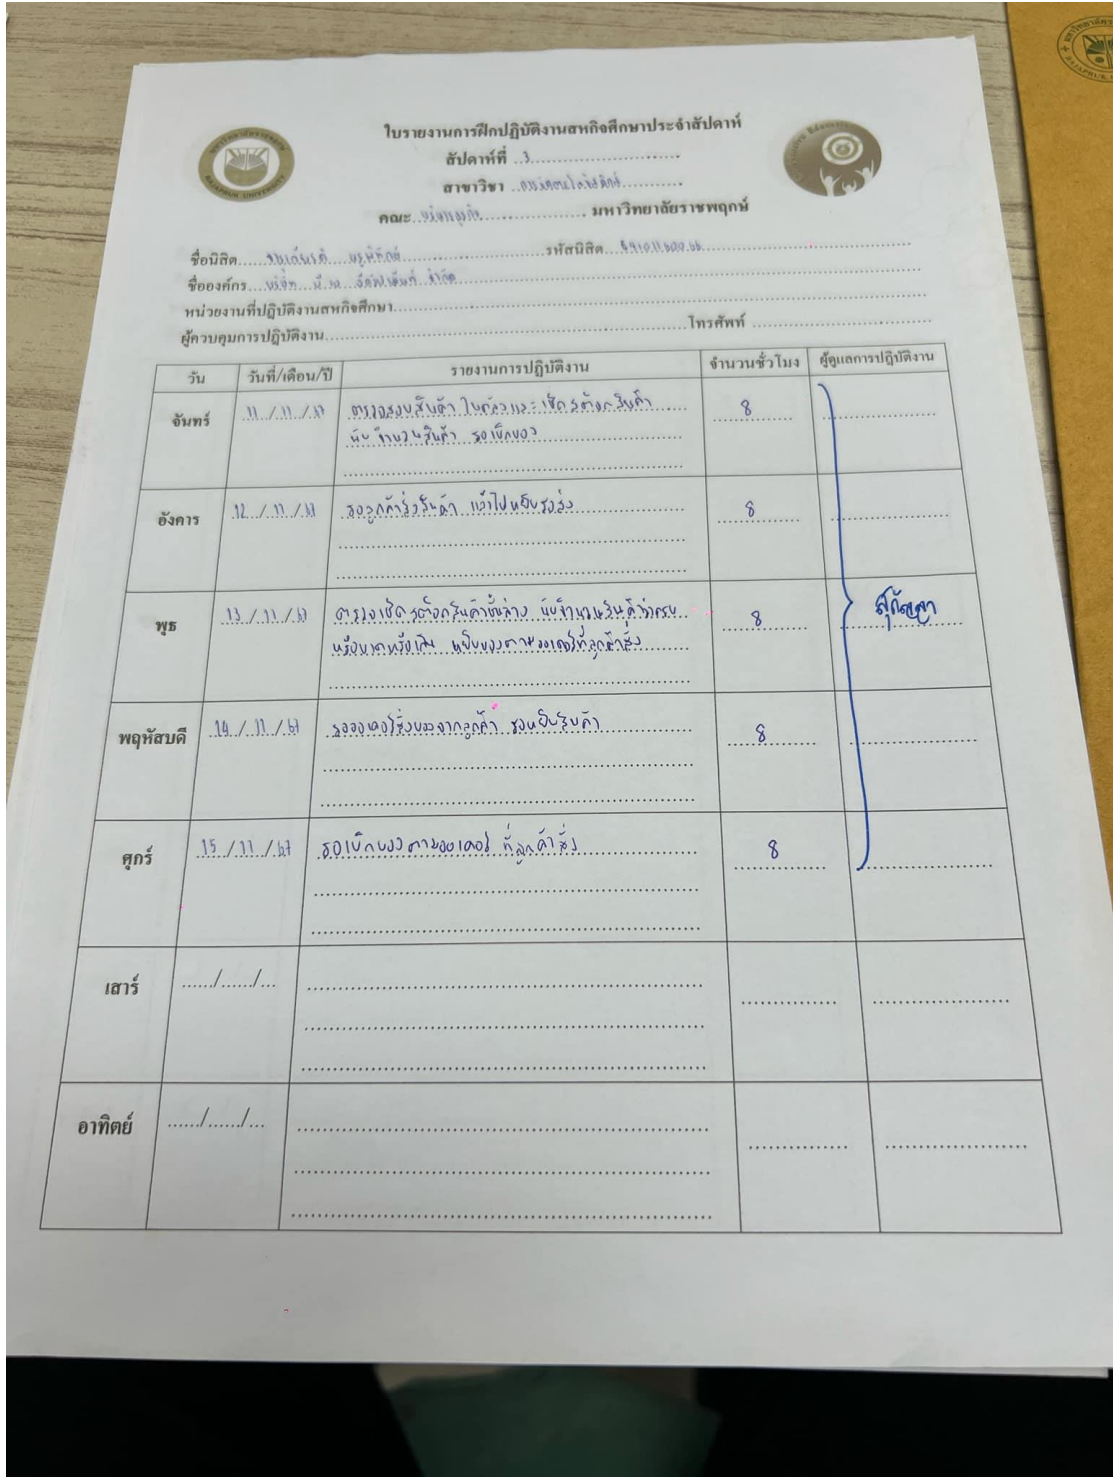 ใบรายงานการฝึกปฏิบัติงานสหกิจศึกษาประจำสัปดาห์
สัปดาห์ที่ 3
สาขาวิชา การจัดการโลจิสติกส์
คณะ บริหารธุรกิจ มหาวิทยาลัยราชพฤกษ์
RAJAPRUK UNIVERSITY
ชื่อนิสิต รหัสนิสิต
ชื่อองค์กร บริษัท จำกัด
หน่วยงานที่ปฏิบัติงานสหกิจศึกษา
ผู้ควบคุมการปฏิบัติงาน โทรศัพท์
วัน วันที่/เดือน/ปี รายงานการปฏิบัติงาน จำนวนชั่วโมง ผู้ดูแลการปฏิบัติงาน
จันทร์ 11 / 11 / 67 ตรวจสอบสินค้า ในคลังและเช็คสต๊อกสินค้า 8
นับจำนวนสินค้า รอเบิกของ
อังคาร 12 / 11 / 67 รอลูกค้าสั่งสินค้า แล้วไปหยิบรอส่ง 8
พุธ 13 / 11 / 67 ตรวจเช็คสต๊อกสินค้าชั้นล่าง นับจำนวนสินค้าว่าครบ 8 สุกัญญา
หรือขาดหรือเกิน หยิบของตามออเดอร์ที่ลูกค้าสั่ง
พฤหัสบดี 14 / 11 / 67 รอออเดอร์สั่งของจากลูกค้า รอหยิบสินค้า 8
ศุกร์ 15 / 11 / 67 รอเบิกของตามออเดอร์ ที่ลูกค้าสั่ง 8
เสาร์ / /
อาทิตย์ / /